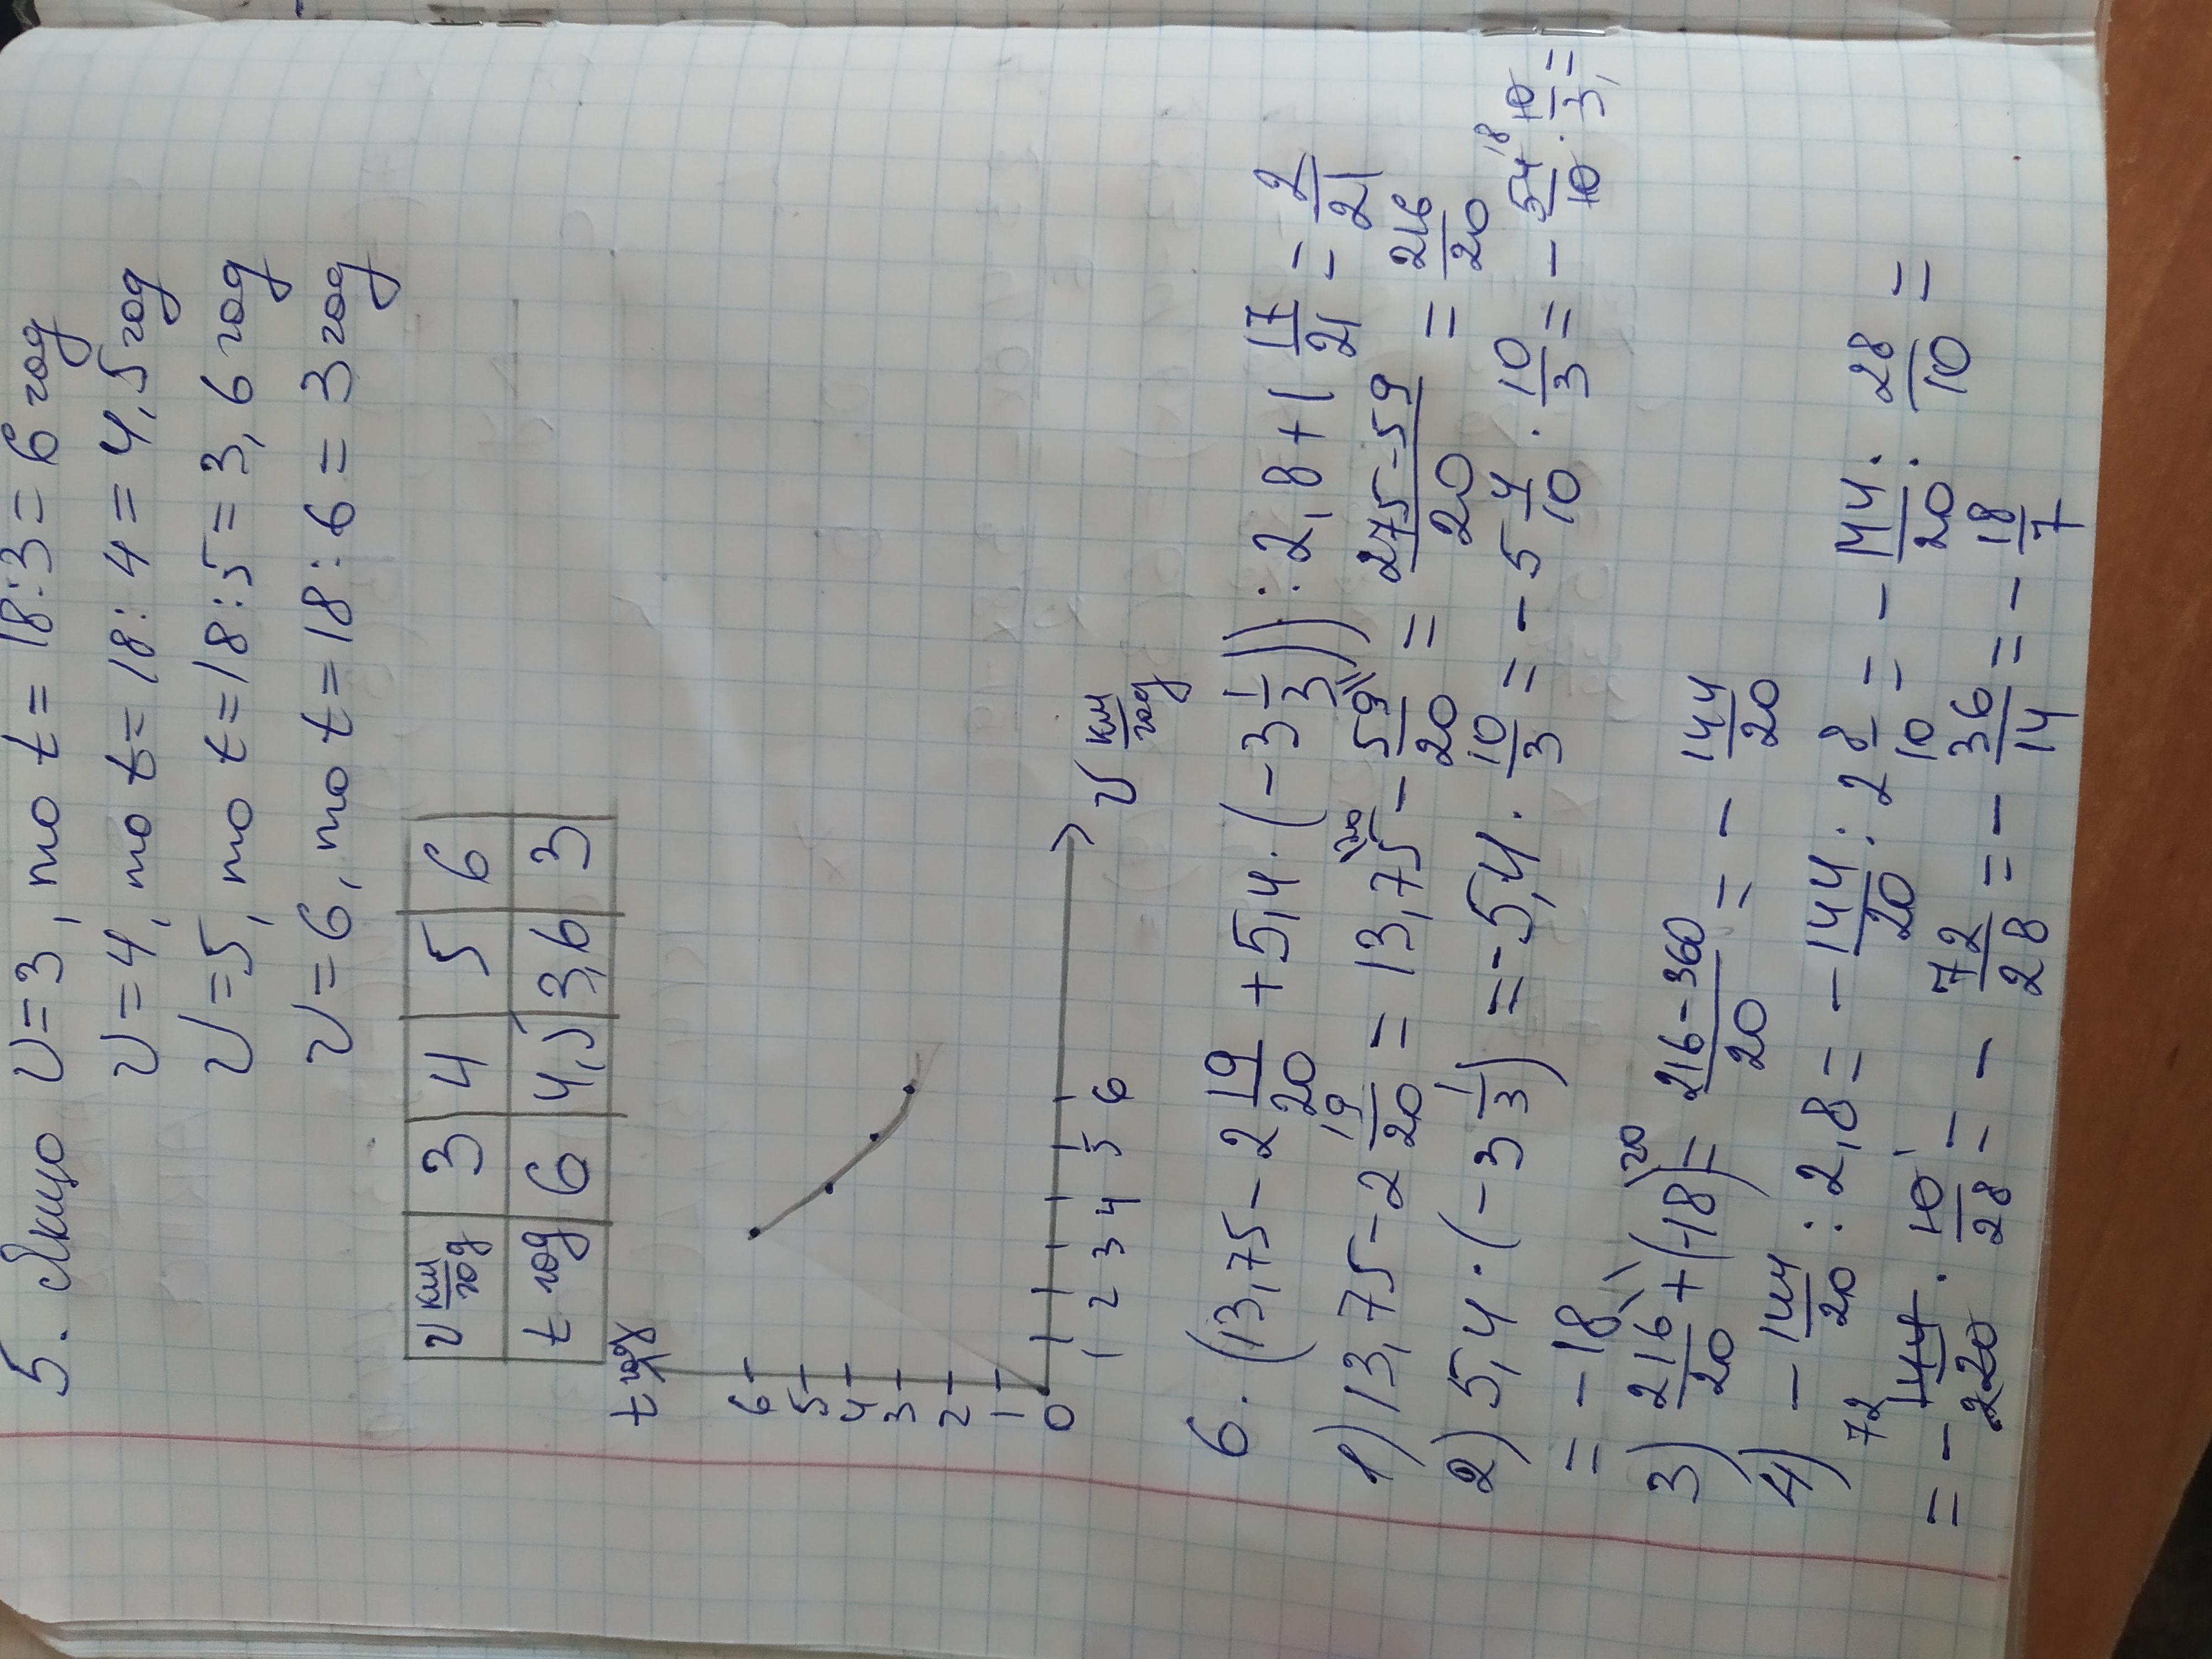 5. Якщо v=3, то t=18:3=6 год
v=4, то t=18:4=4,5 год
v=5, то t=18:5=3,6 год
v=6, то t=18:6=3 год
v км/год 3 4 5 6
t год 6 4,5 3,6 3
t год
6
5
4
3
2
1
0
1 2 3 4 5 6
v км/год
6. (13,75-2 19/20+5,4·(-3 1/3)):2,8+1 17/21=-2/21
1) 13,75-2 19/20=13,75\20-59/20\1=275-59/20=216/20
2) 5,4·(-3 1/3)=-5,4·10/3=-5 4/10·10/3=-54 18/10·10/3,=
=-18
3) 216/20\1+(-18)\20=216-360/20=-144/20
4) -144/20:2,8=-144/20:2 8/10=-144/20:28/10=
=-144 72/220·10 1/28=-72/28=-36/14=-18/7